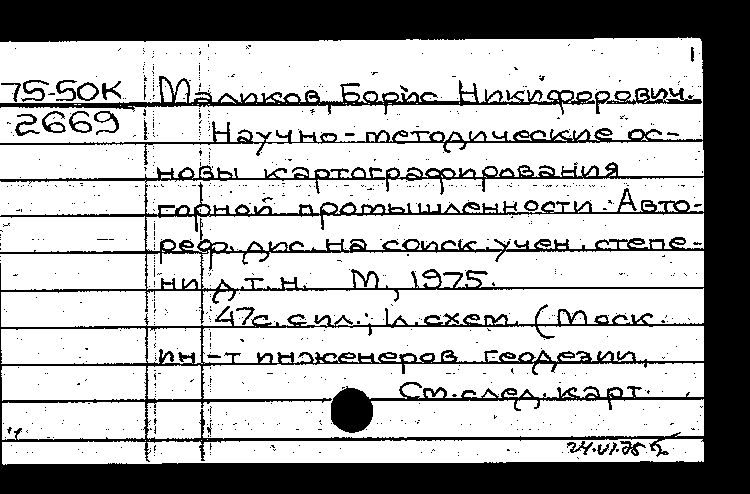 1
75-50К Маликов, Борис Никифорович.
2669 Научно-методические ос-
новы картографирования
горной промышленности. Авто-
реф. дис. на соиск. учен. степе-
ни д.т.н. М., 1975.
47с. с ил.; 1л. схем. (Моск.
ин-т инженеров геодезии,
См. след. карт.